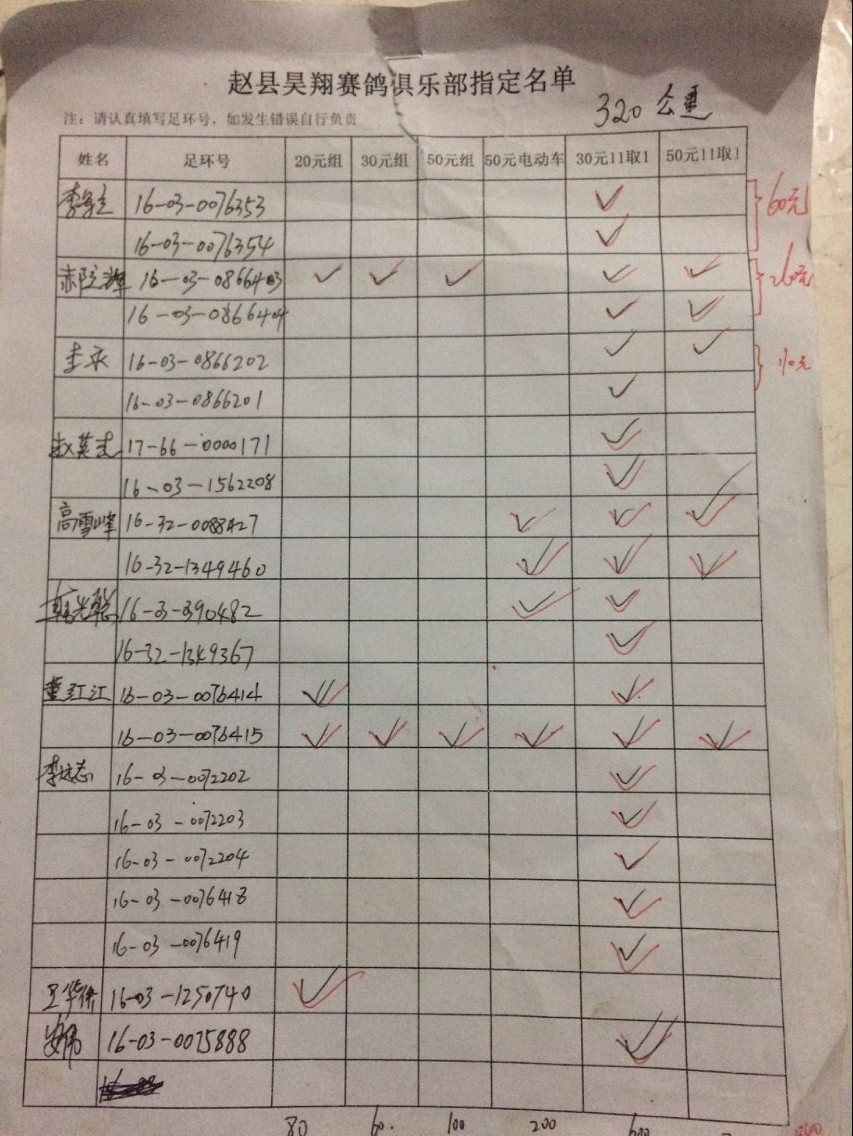 赵县昊翔赛鸽俱乐部指定名单
320 公里
注：请认真填写足环号，如发生错误自行负责
姓名 足环号 20元组 30元组 50元组 50元电动车 30元11取1 50元11取1
16-03-0076353 ✓ 60元
16-03-0076354 ✓
16-03-0866403 ✓ ✓ ✓ ✓ ✓ 260元
16-03-0866404 ✓ ✓
16-03-0866202 ✓ ✓ 110元
16-03-0866201 ✓
17-66-0000171 ✓
16-03-1562208 ✓
高雪峰 16-32-0088427 ✓ ✓ ✓
16-32-1349460 ✓ ✓ ✓
16-03-390482 ✓ ✓
16-32-1349367 ✓
董红江 16-03-0076414 ✓ ✓
16-03-0076415 ✓ ✓ ✓ ✓ ✓ ✓
16-03-0072202 ✓
16-03-0072203 ✓
16-03-0072204 ✓
16-03-0076418 ✓
16-03-0076419 ✓
16-03-1250740 ✓
安伟 16-03-0075888 ✓
80 60. 100 200 600